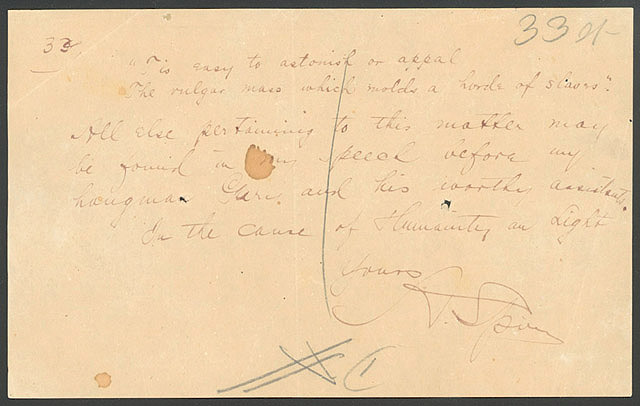 33
33
"Tis easy to astonish or appal
The vulgar mass which molds a horde of slaves".
All else pertaining to this matter may
be found in my speech before my
hangman Gary, and his worthy assistants.
In the cause of Humanity, an Light
Yours
A. Spies